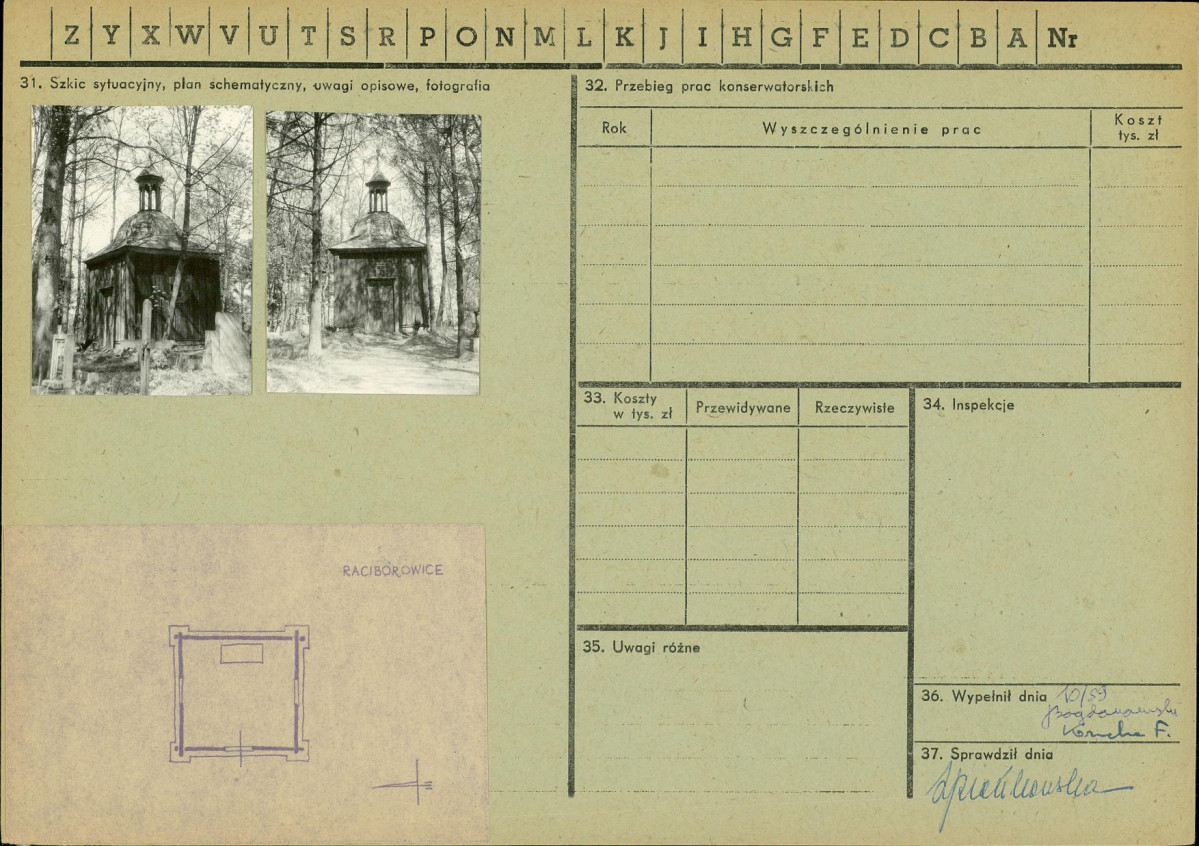 Z Y X W V U T S R P O N M L K J I H G F E D C B A Nr
31. Szkic sytuacyjny, plan schematyczny, uwagi opisowe, fotografia
RACIBOROWICE
32. Przebieg prac konserwatorskich
Rok
Wyszczególnienie prac
Koszt
tys. zł
33. Koszty
w tys. zł
Przewidywane
Rzeczywiste
34. Inspekcje
35. Uwagi różne
36. Wypełnił dnia 10/59
F.
37. Sprawdził dnia